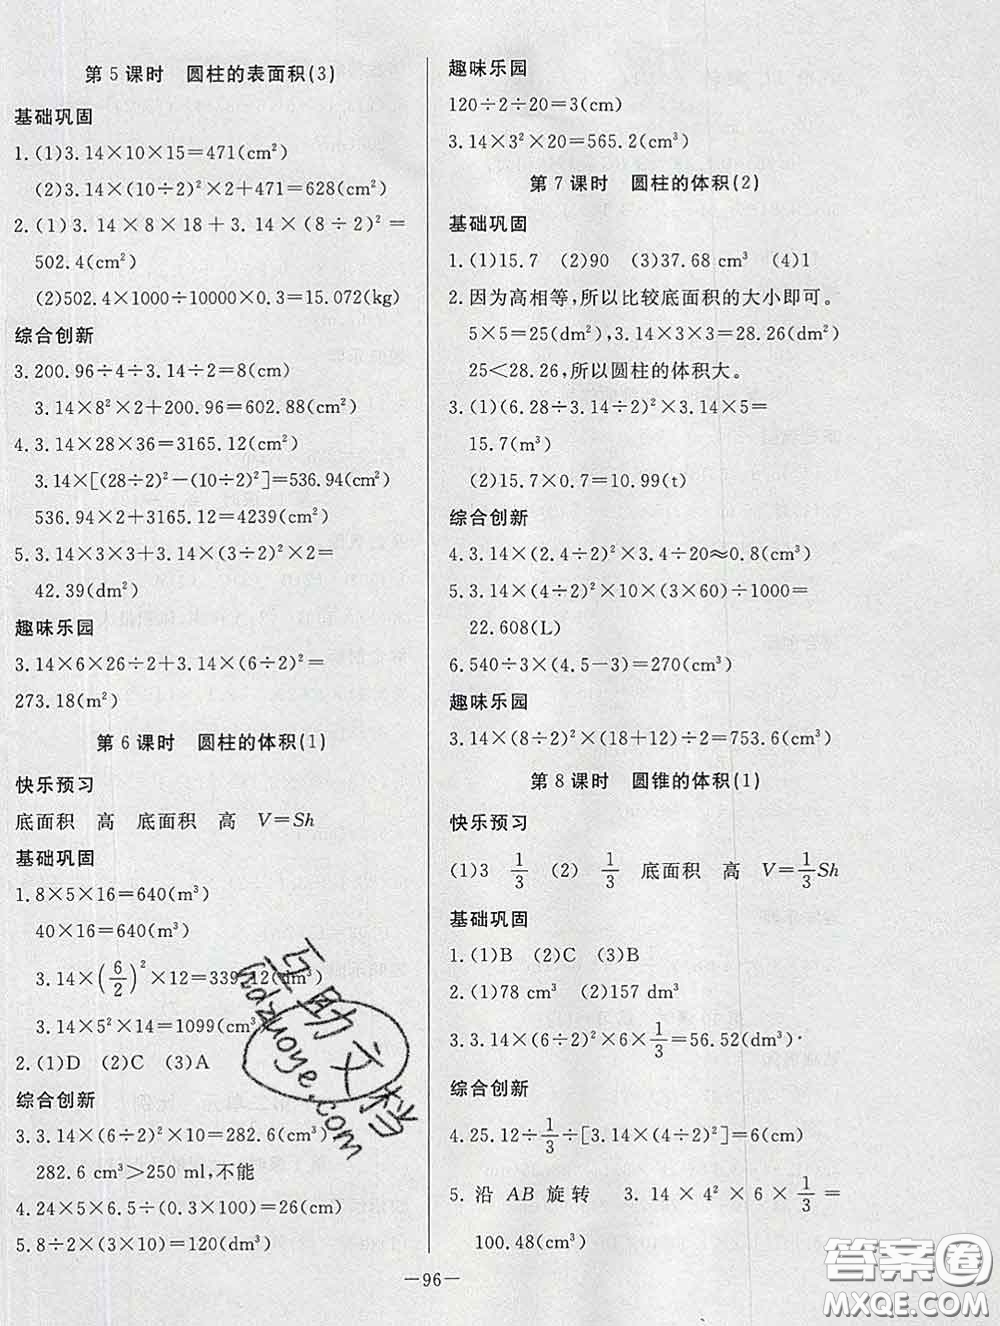 第5课时 圆柱的表面积(3)
基础巩固
1.(1)3.14×10×15=471(cm²)
(2)3.14×(10÷2)²×2+471=628(cm²)
2.(1)3.14×8×18+3.14×(8÷2)²=
502.4(cm²)
(2)502.4×1000÷10000×0.3=15.072(kg)
综合创新
3.200.96÷4÷3.14÷2=8(cm)
3.14×8²×2+200.96=602.88(cm²)
4.3.14×28×36=3165.12(cm²)
3.14×[(28÷2)²-(10÷2)²]=536.94(cm²)
536.94×2+3165.12=4239(cm²)
5.3.14×3×3+3.14×(3÷2)²×2=
42.39(dm²)
趣味乐园
3.14×6×26÷2+3.14×(6÷2)²=
273.18(m²)
第6课时 圆柱的体积(1)
快乐预习
底面积 高 底面积 高 V=Sh
基础巩固
1.8×5×16=640(m³)
40×16=640(m³)
3.14×(6/2)²×12=339.12(dm³)
3.14×5²×14=1099(cm³)
2.(1)D (2)C (3)A
综合创新
3.3.14×(6÷2)²×10=282.6(cm³)
282.6 cm³>250 ml,不能
4.24×5×6.5÷(0.3×100)=26(cm)
5.8÷2×(3×10)=120(dm³)
趣味乐园
120÷2÷20=3(cm)
3.14×3²×20=565.2(cm³)
第7课时 圆柱的体积(2)
基础巩固
1.(1)15.7 (2)90 (3)37.68 cm³ (4)1
2.因为高相等,所以比较底面积的大小即可。
5×5=25(dm²),3.14×3×3=28.26(dm²)
25<28.26,所以圆柱的体积大。
3.(1)(6.28÷3.14÷2)²×3.14×5=
15.7(m³)
(2)15.7×0.7=10.99(t)
综合创新
4.3.14×(2.4÷2)²×3.4÷20≈0.8(cm³)
5.3.14×(4÷2)²×10×(3×60)÷1000=
22.608(L)
6.540÷3×(4.5-3)=270(cm³)
趣味乐园
3.14×(8÷2)²×(18+12)÷2=753.6(cm³)
第8课时 圆锥的体积(1)
快乐预习
(1)3 1/3 (2) 1/3 底面积 高 V=1/3Sh
基础巩固
1.(1)B (2)C (3)B
2.(1)78 cm³ (2)157 dm³
3.3.14×(6÷2)²×6×1/3=56.52(dm³)
综合创新
4.25.12÷1/3÷[3.14×(4÷2)²]=6(cm)
5.沿 AB 旋转 3.14×4²×6×1/3=
100.48(cm³)
—96—
互助文档
hdzuoye.com
答案圈
MXQE.COM